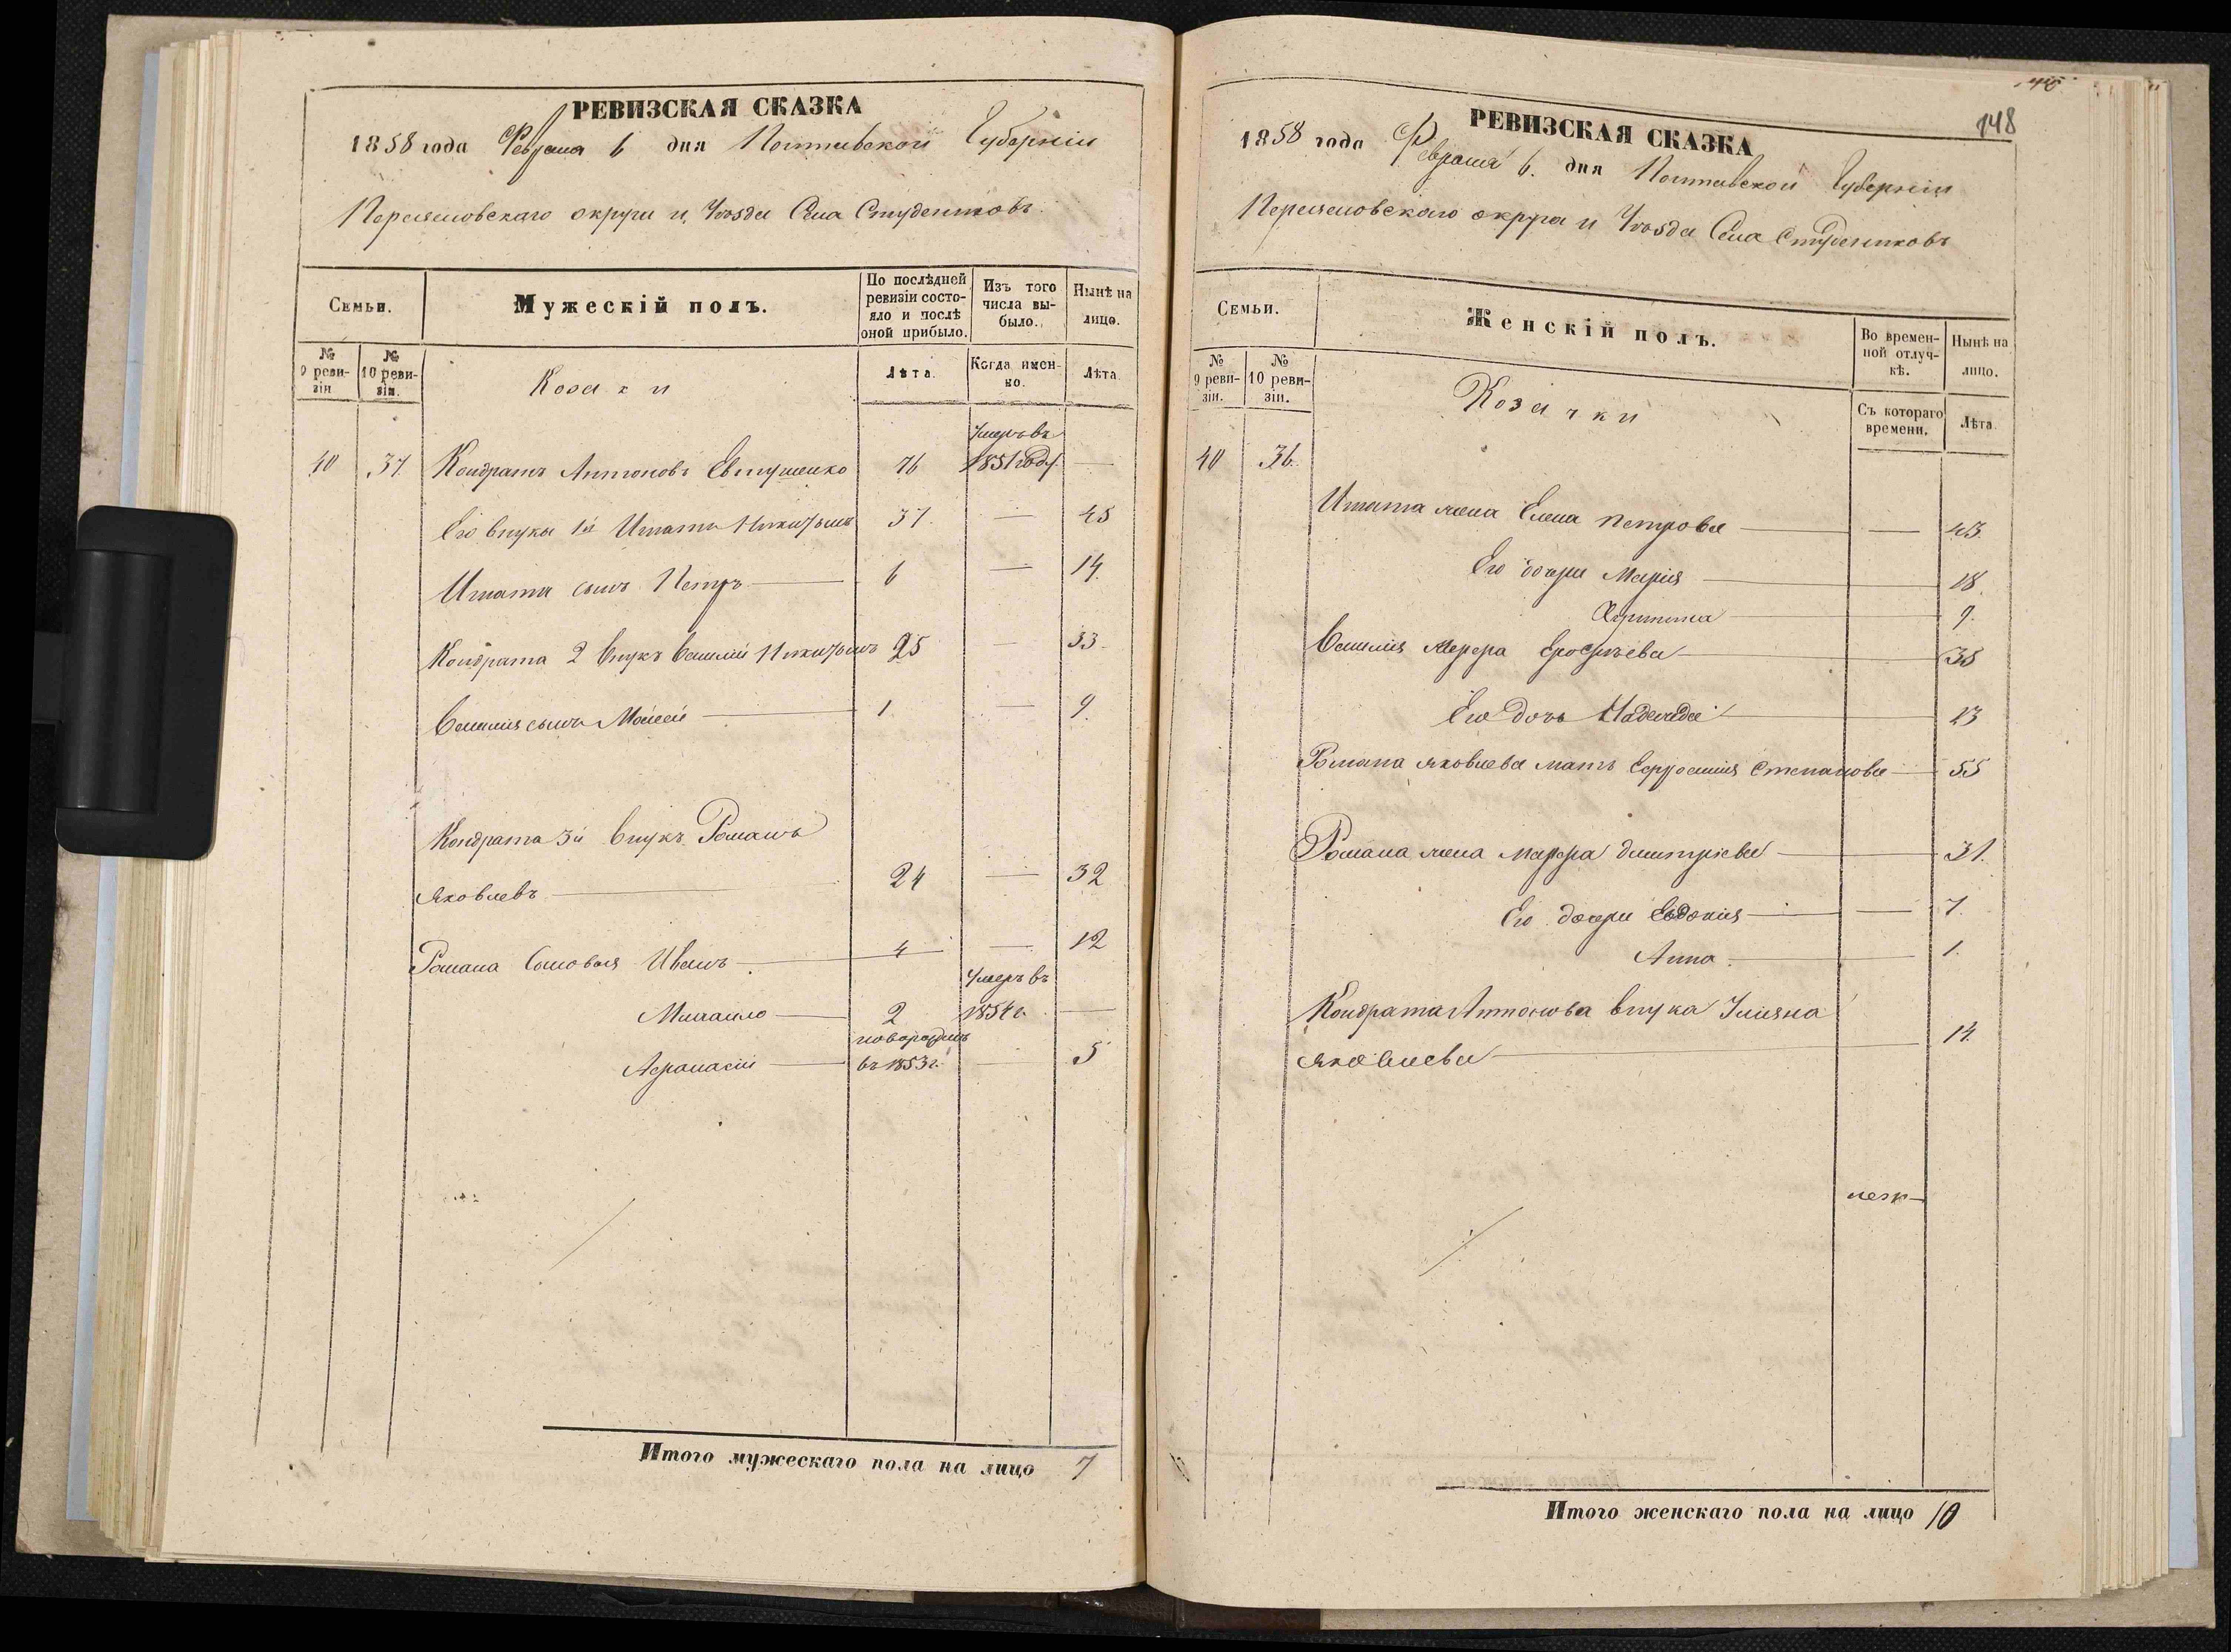 РЕВИЗСКАЯ СКАЗКА
1858 года Февраля 6 дня Полтавской Губерніи
Переяславскаго округа и Уѣзда Села Студениковъ
Семьи.
Мужескій полъ.
По послѣдней ревизіи состояло и послѣ оной прибыло.
Изъ того числа выбыло.
Нынѣ на лицо.
№ 9 ревизіи
№ 10 ревизіи.
Козаки
Лѣта.
Когда именно.
Лѣта.
Умеръ въ
40 37. Кондратъ Антоновъ Евтушенко 76 1851 году. —
Его внуки 1й Игнатъ Никитинъ 37. — 45
Игната сынъ Петръ — 6 — 14.
Кондрата 2 внукъ Василій Никитинъ 25 — 33.
Василія сынъ Моисей — 1 — 9.
Кондрата 3й внукъ Романъ
Яковлевъ — 24 — 32
Романа сыновья Иванъ — 4 — 12
Умеръ въ
Михайло — 2 1854 г. —
новорожденъ
Афанасій — въ 1853 г. — 5
Итого мужескаго пола на лицо 7
148
РЕВИЗСКАЯ СКАЗКА
1858 года Февраля 6. дня Полтавской Губерніи
Переяславскаго округа и Уѣзда Села Студениковъ
Семьи.
Женскій полъ.
Во временной отлучкѣ.
Нынѣ на лицо.
№ 9 ревизіи.
№ 10 ревизіи.
Козачки
Съ котораго времени.
Лѣта.
40 36.
Игната жена Елена Петрова — — 43.
Его дочери Марія — 18.
Христина — 9.
Василія Марфа Ерофѣева — 38
Его дочь Надежда — 13
Романа Яковлева мать Ефросинія Степанова — 55
Романа жена Марфа Дмитріева — 31.
Его дочери Евдокія — — 7.
Анна — 1.
Кондрата Антонова внука Уліяна
Яковлева — 14.
Итого женскаго пола на лицо 10